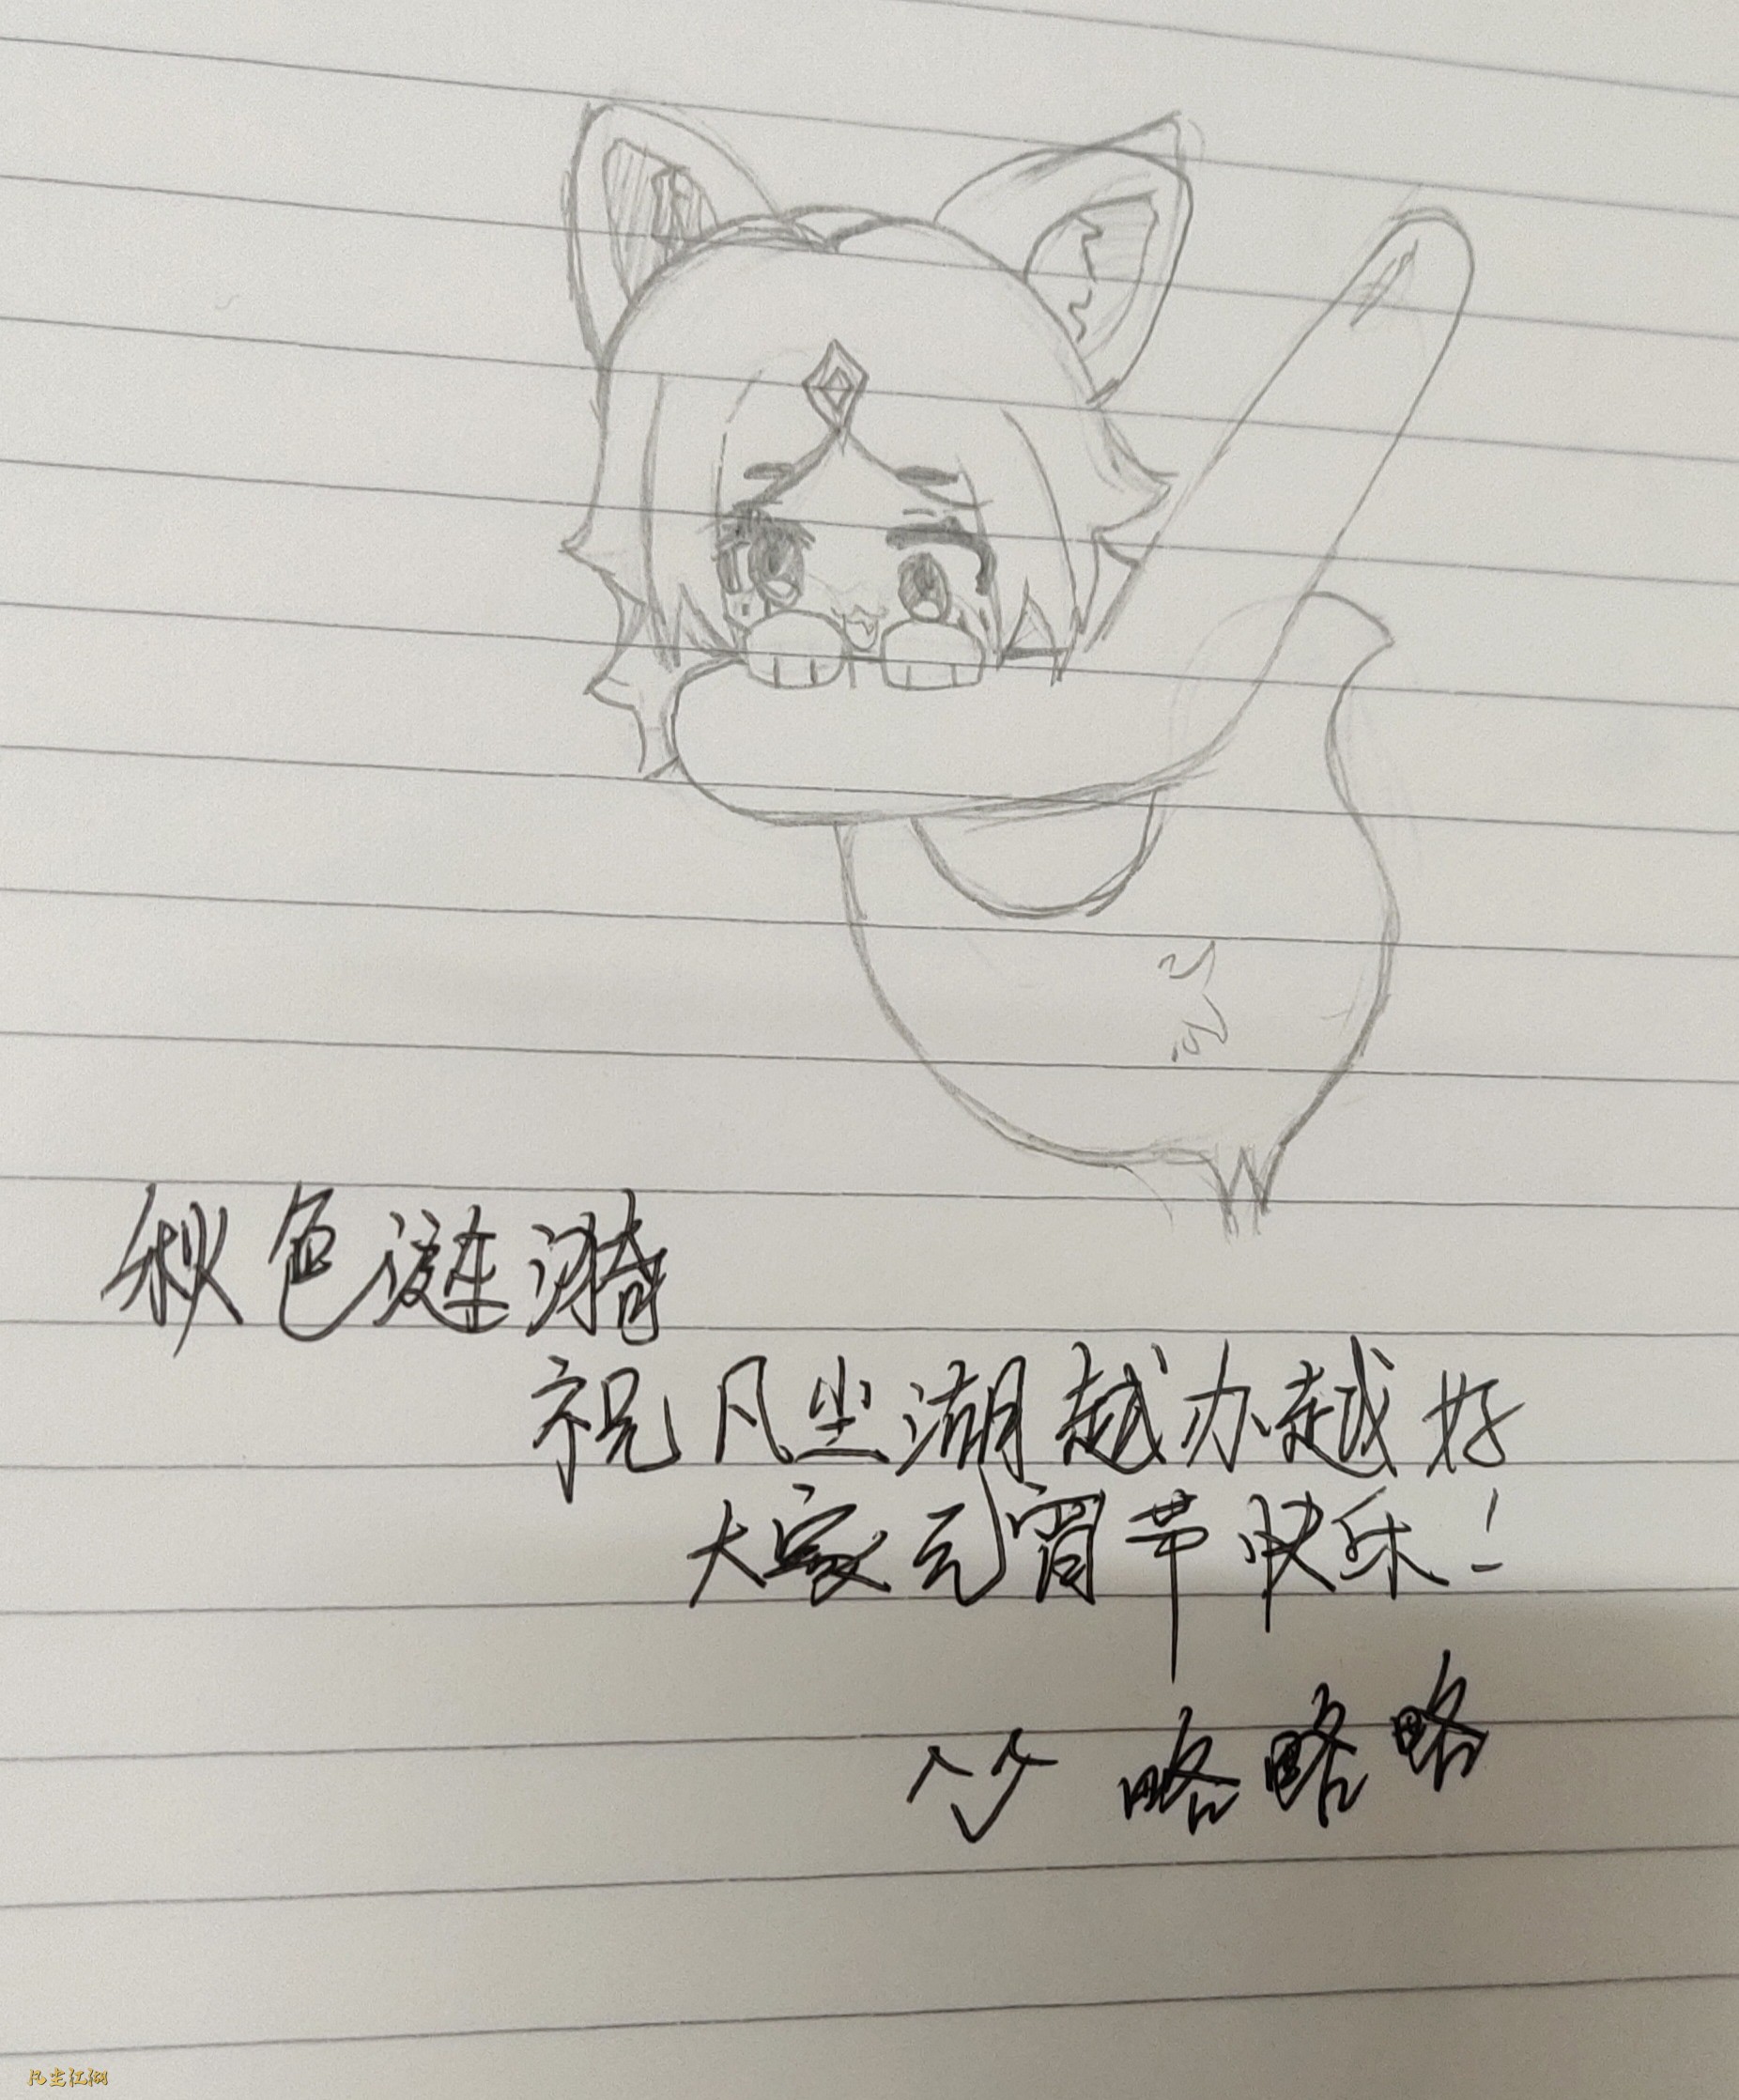 秋色涟漪
祝凡尘湖越办越好
大家元宵节快乐！
竹略略略
凡尘江湖